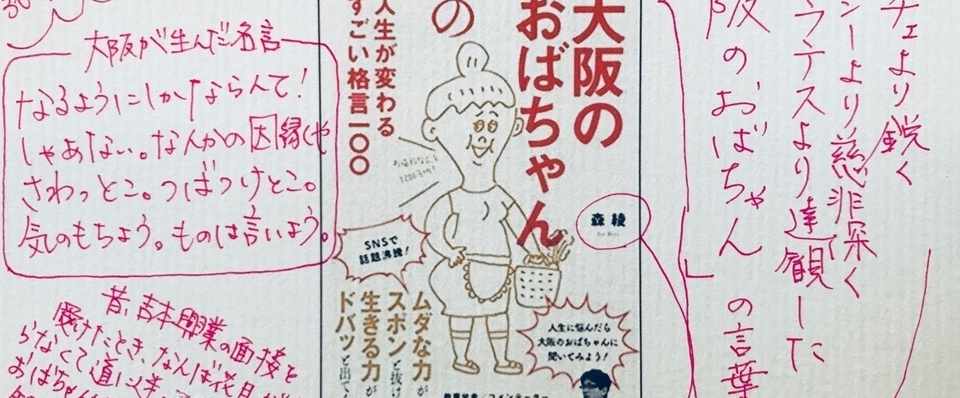 チェより鋭く
シーより慈悲深く
ラテスより達観した
阪のおばちゃん」の言葉
大阪の
おばちゃん
の
人生が変わる
すごい格言一〇〇
森 綾
SNSで
話題沸騰!
ムダな力が
スポンと抜け
生きる力が
ドバッと出て
人生に悩んだら
大阪のおばちゃんに
聞いてみよう!
大阪が生んだ名言
なるようにしかならんて!
しゃあない。なんかの因縁じゃ
さわっとこ。つばつけとこ。
気のもちよう。ものは言いよう。
昔、吉本興業の面接を
受けたとき、なんば花月
らなくて道に
おばちゃ